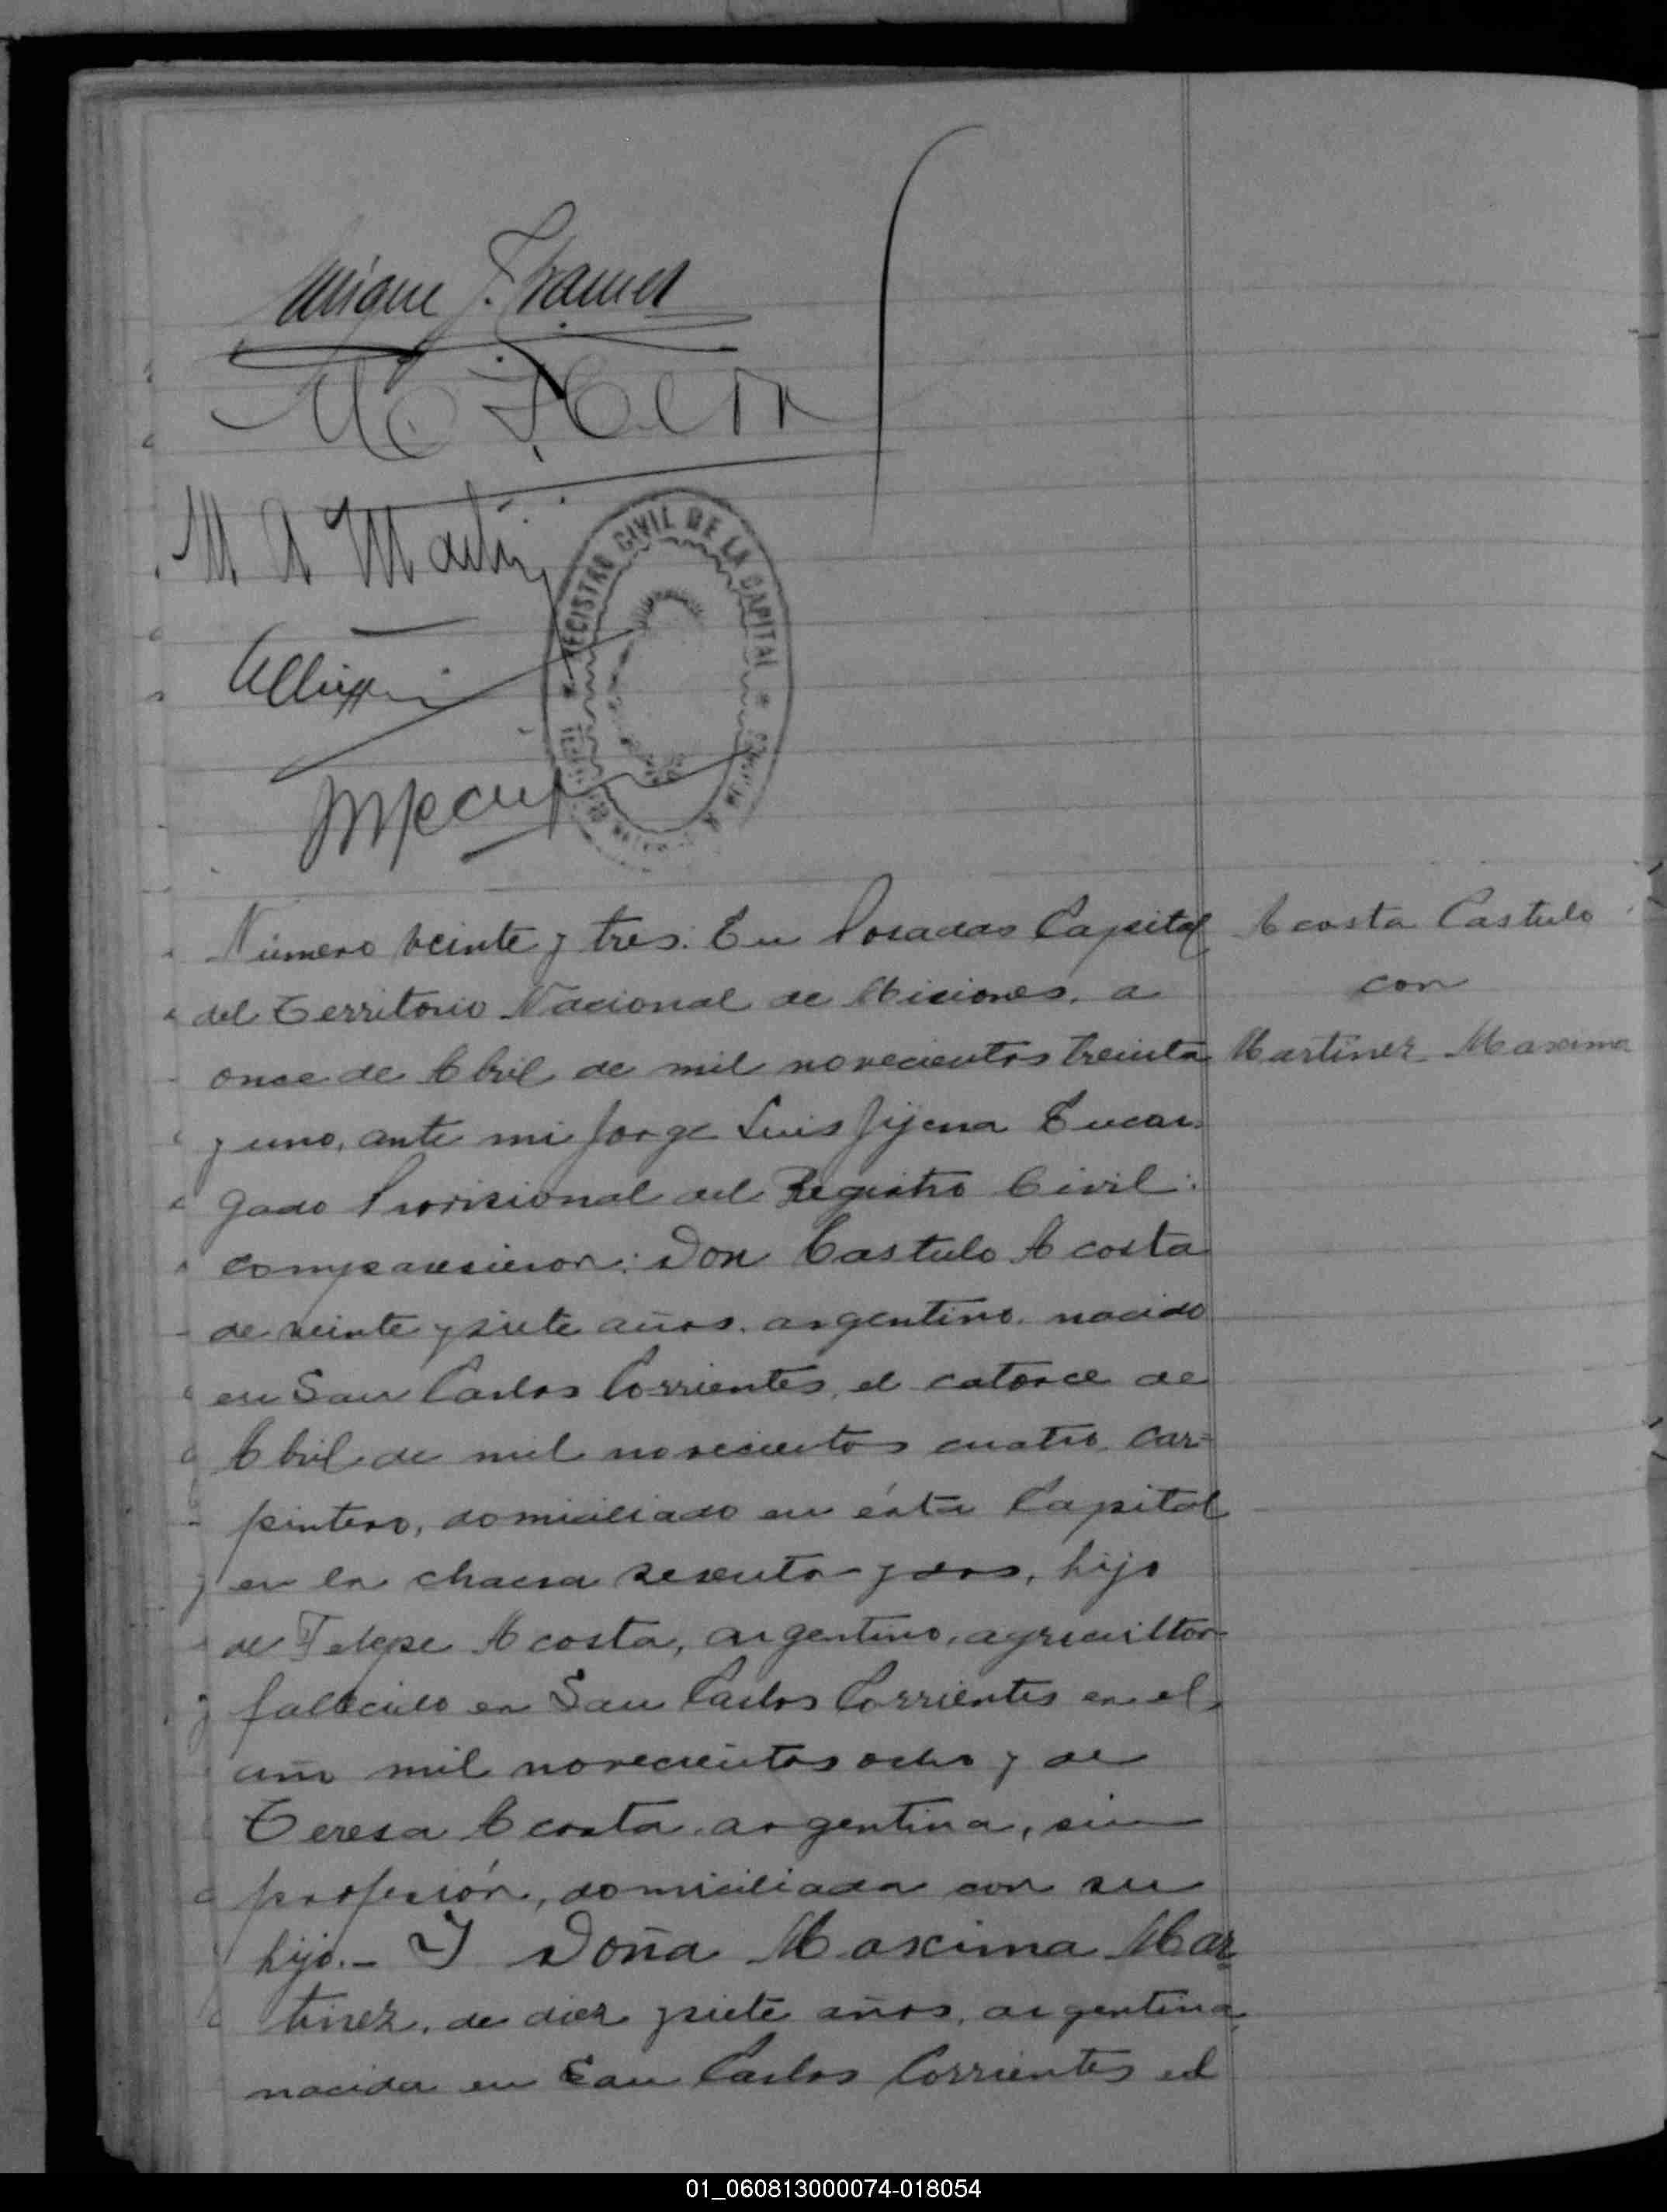 REGISTRO CIVIL DE LA CAPITAL
Número veinte y tres. En Posadas Capital
del Territorio Nacional de Misiones, a
once de Abril de mil novecientos treinta
y uno, ante mi Jorge Luis Jijena Encar-
gado Provisional del Registro Civil:
comparecieron: Don Castulo Acosta
de veinte y siete años, argentino, nacido
en San Carlos Corrientes, el catorce de
Abril de mil novecientos cuatro, car=
pintero, domiciliado en ésta Capital
en la chacra sesenta y dos, hijo
de Felipe Acosta, argentino, agricultor
fallecido en San Carlos Corrientes en el
año mil novecientos ocho y de
Teresa Acosta, argentina, sin
profesión, domiciliada con su
hijo.- Y Doña Maxima Mar=
tinez, de diez y siete años, argentina,
nacida en San Carlos Corrientes el
Acosta Castulo
con
Martinez Maxima
01_060813000074-018054